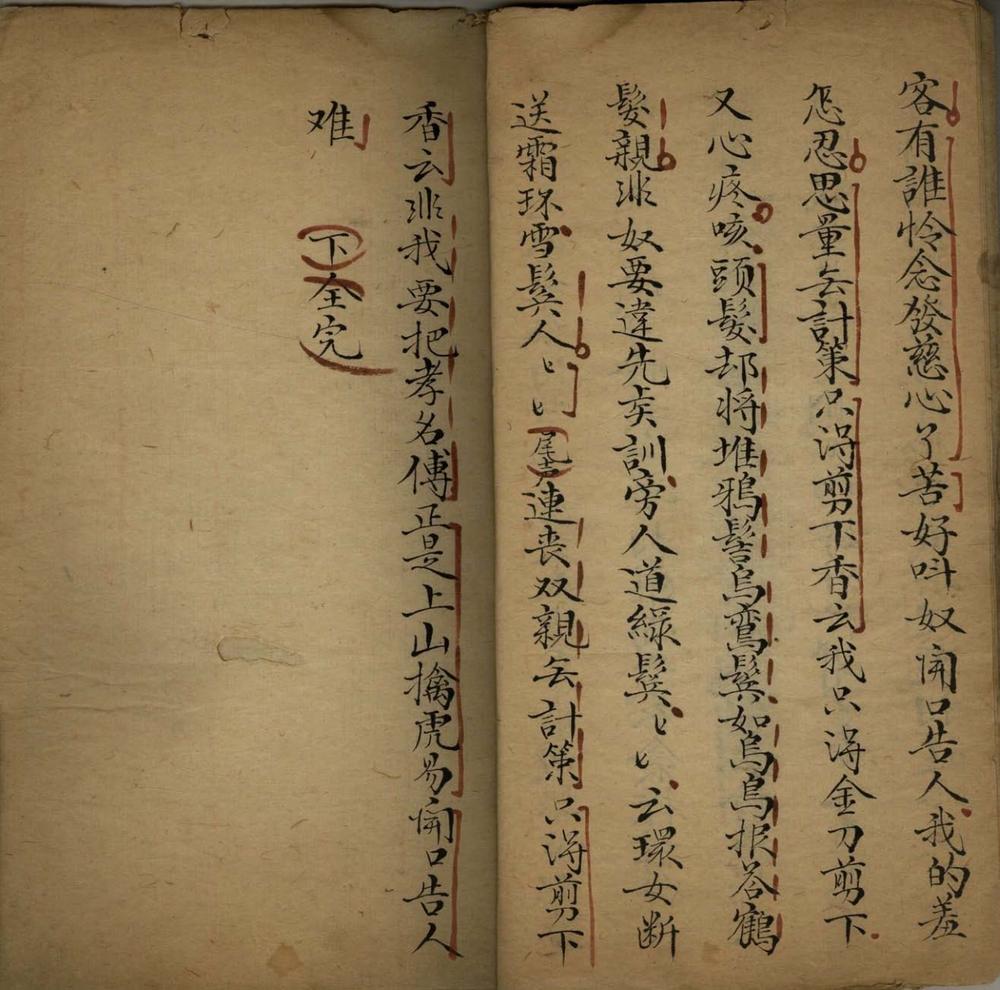 客有誰怜念發慈心了苦好呌奴開口告人我的羞
怎忍思量無計策只得剪下香云我只得金刀剪下
又心疼咳頭髮却將堆鴉髻烏鸞鬢如烏烏报答鶴
髮親非奴要違先矣訓旁人道綠鬢匕匕云環女断
送霜环雪鬓人匕匕尾声連丧双親無計策只得剪下
香云非我要把孝名傅正是上山擒虎易開口告人
难 下全完